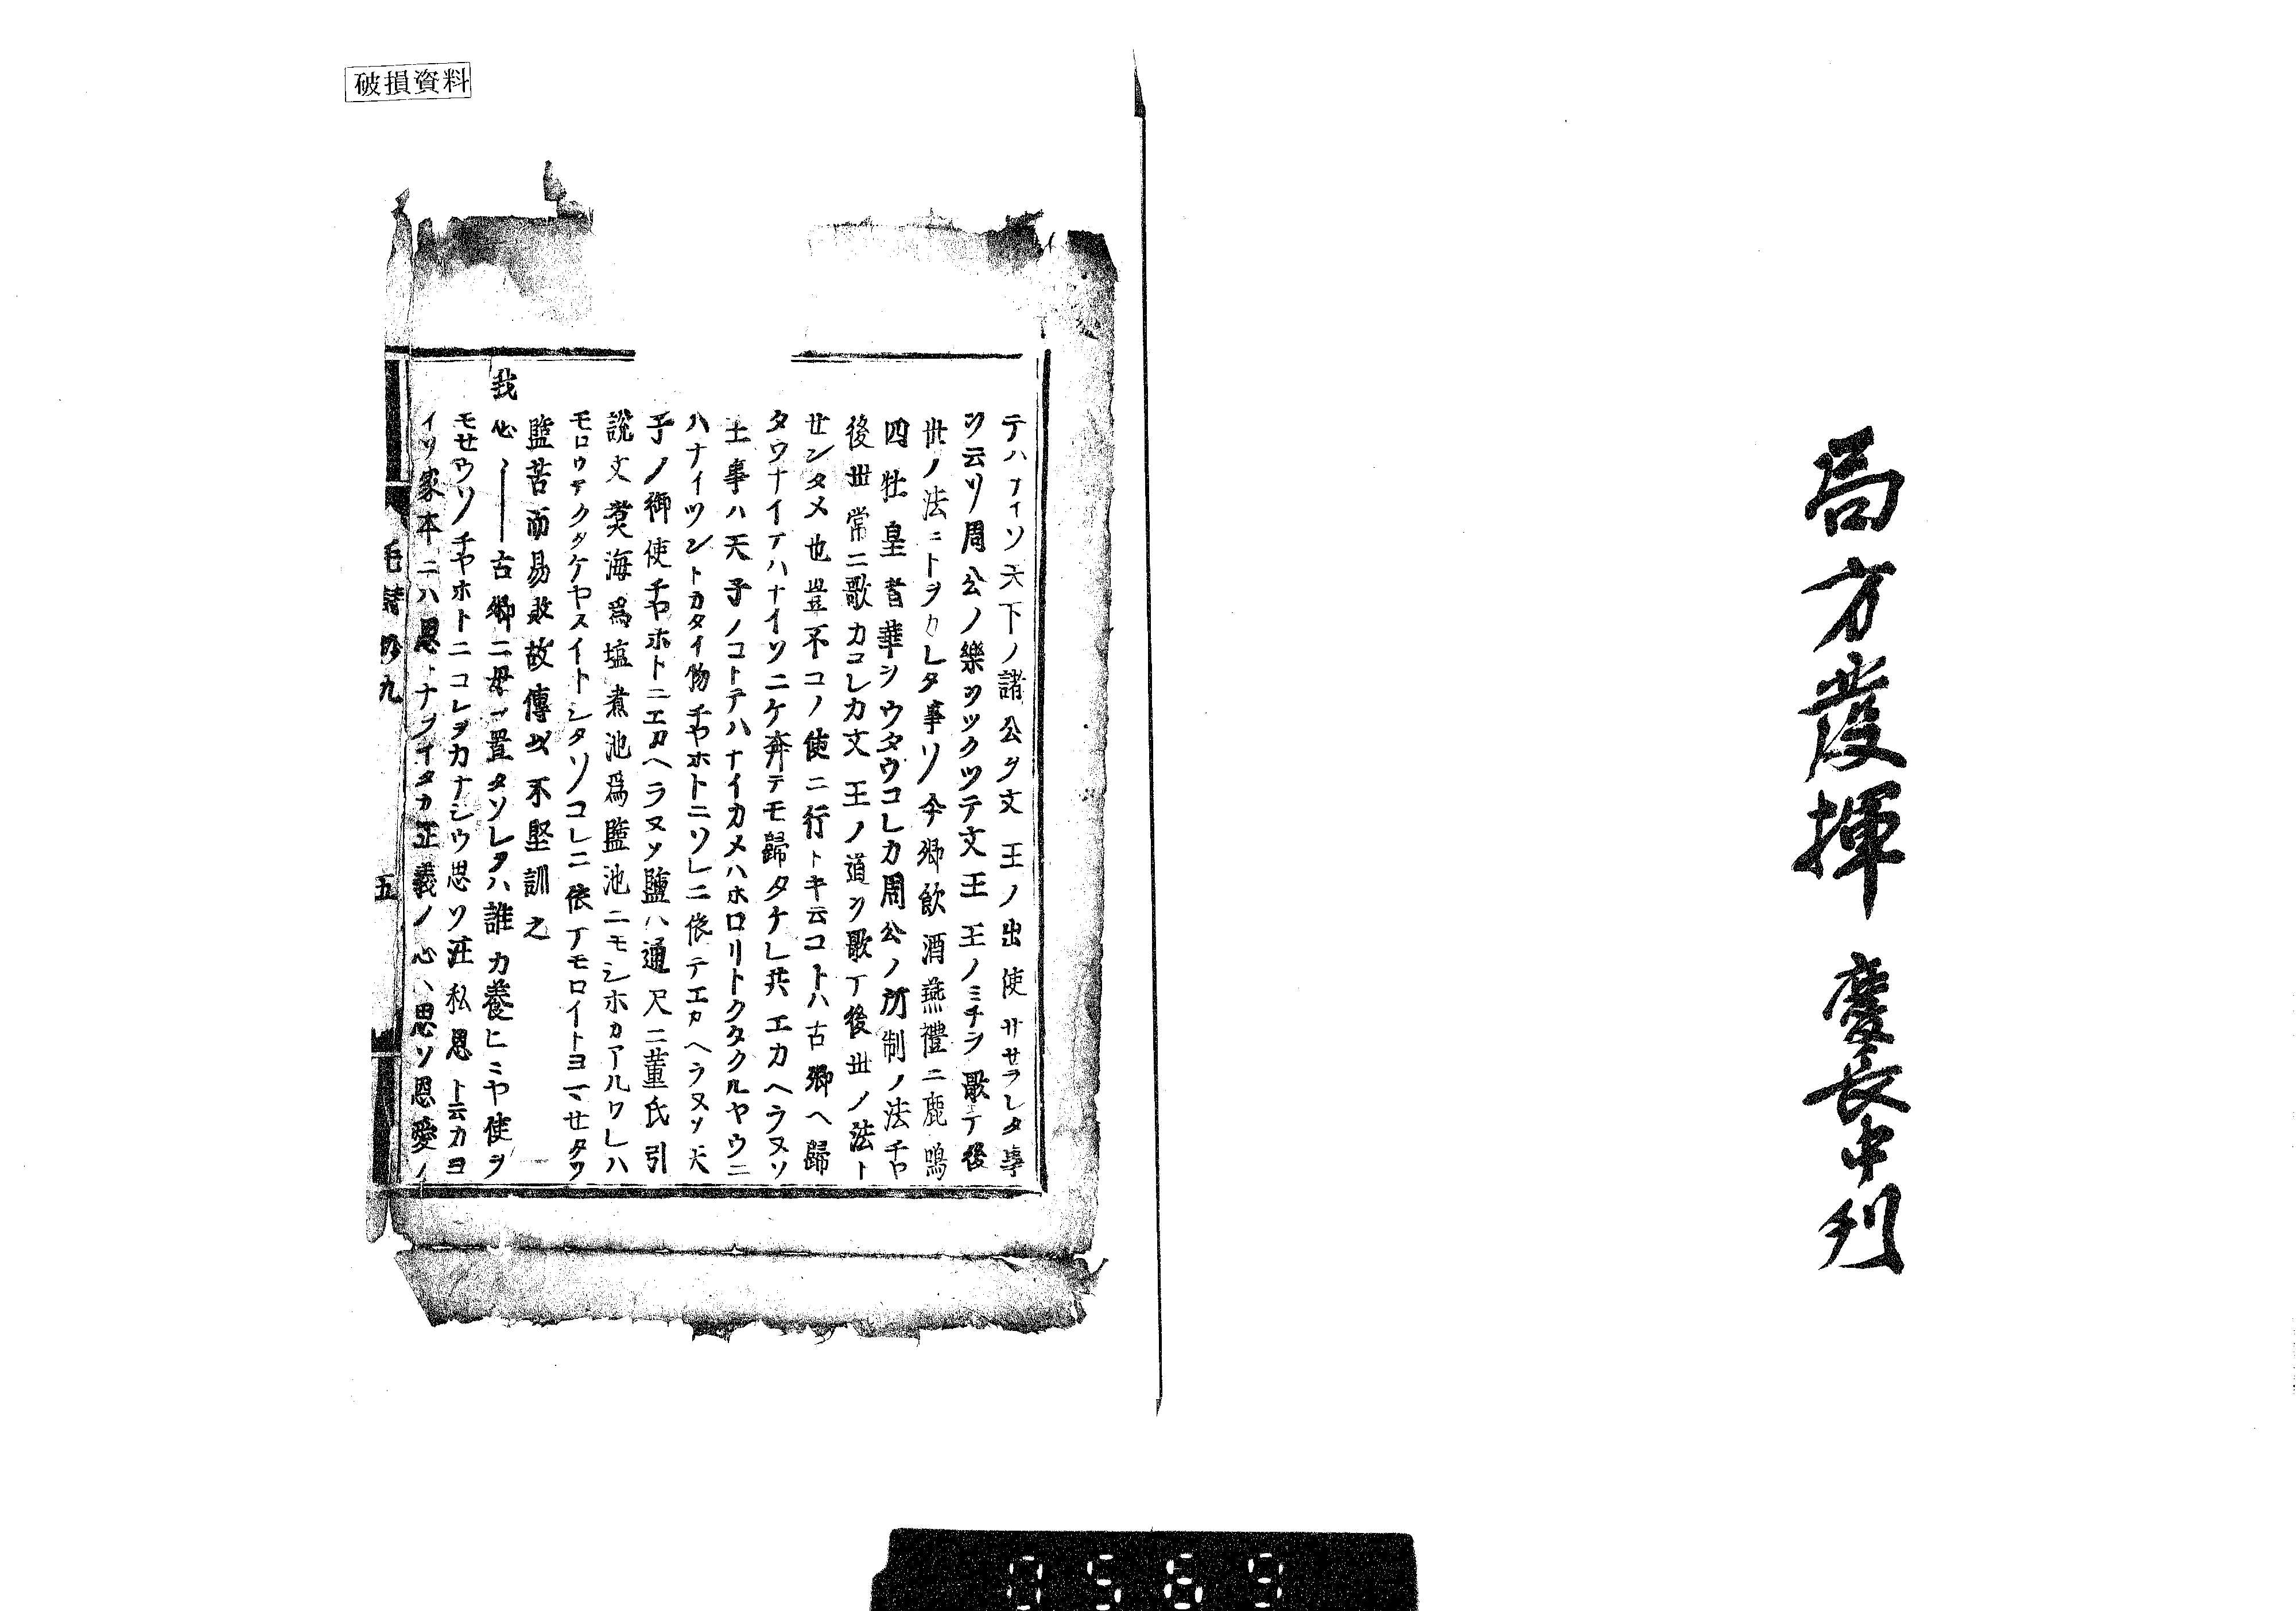 局方發揮 慶長中刊
破損資料
テハナイソ天下ノ諸公ヲ文王ノ出使サセラレタ事
ヲ云ソ周公ノ樂ヲツクツテ文王王ノミチヲ歌テ後
世ノ法ニトヲカレタ事ソ今郷飲酒燕禮ニ鹿鳴
四牡皇者華ヲウタウコレカ周公ノ所制ノ法チヤ
後世常ニ歌カコレカ文王ノ道ヲ歌テ後世ノ法ト
せンタメ也豈不コノ使ニ行トキ云コトハ古郷ヘ歸
タウナイテハナイソニケ奔テモ歸タケレ共エカヘラヌソ
王事ハ天子ノコトテハナイカメハホロリトクタクルヤウニ
ハナイソントカタイ物チヤホトニソレニ依テエカヘラヌソ天
子ノ御使チヤホトニエカヘラヌソ盬ハ通尺ニ董氏引
說文煑海爲塩煮池爲盬池ニモシホカアルワレハ
モロウテクタケヤスイトシタソコレニ依テモロイトヨマせタソ
盬苦而易敗故傳以不堅訓之
我心、――古郷ニ母ヲ置タソレヲハ誰カ養ヒミヤ使ヲ
モせウソチヤホトニコレヲカナシウ思ソ注私恩ト云カヨ
イソ家本ニハ思トナヲイタカ正義ノ心ハ思ソ恩愛ノ
毛詩抄九
五
0569